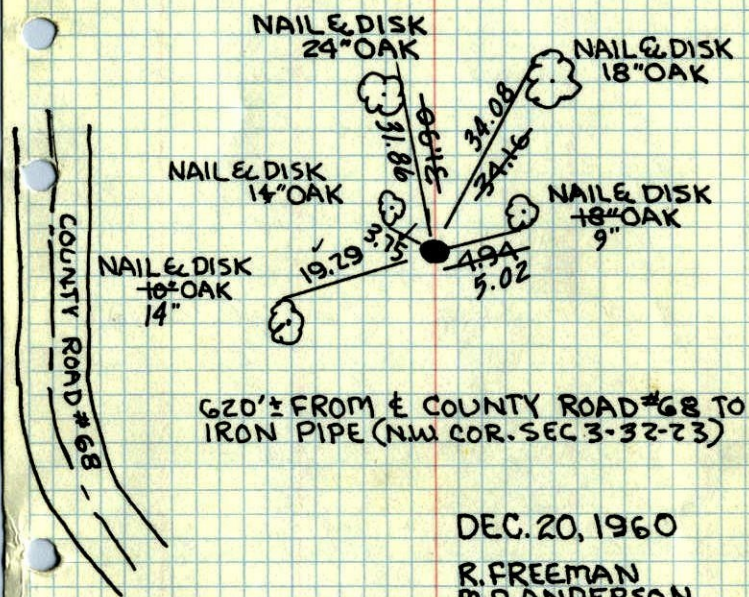 NAIL & DISK
24" OAK
NAIL & DISK
18" OAK
31.86
31.90
34.08
34.16
NAIL & DISK
14" OAK
NAIL & DISK
18" OAK
9"
3.75
4.94
5.02
NAIL & DISK
10" OAK
14"
19.29
COUNTY ROAD #68
620'± FROM ℄ COUNTY ROAD #68 TO
IRON PIPE (N.W. COR. SEC 3-32-23)
DEC. 20, 1960
R. FREEMAN
M.P. ANDERSON